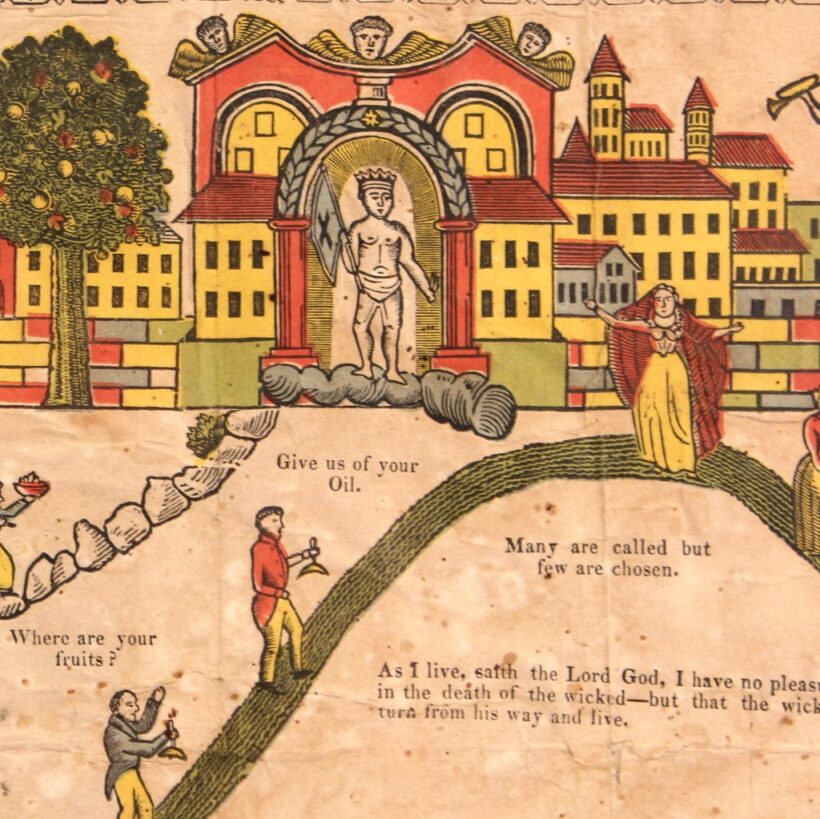 Give us of your
Oil.
Many are called but
few are chosen.
Where are your
fruits?
As I live, saith the Lord God, I have no pleasu
in the death of the wicked—but that the wick
turn from his way and live.